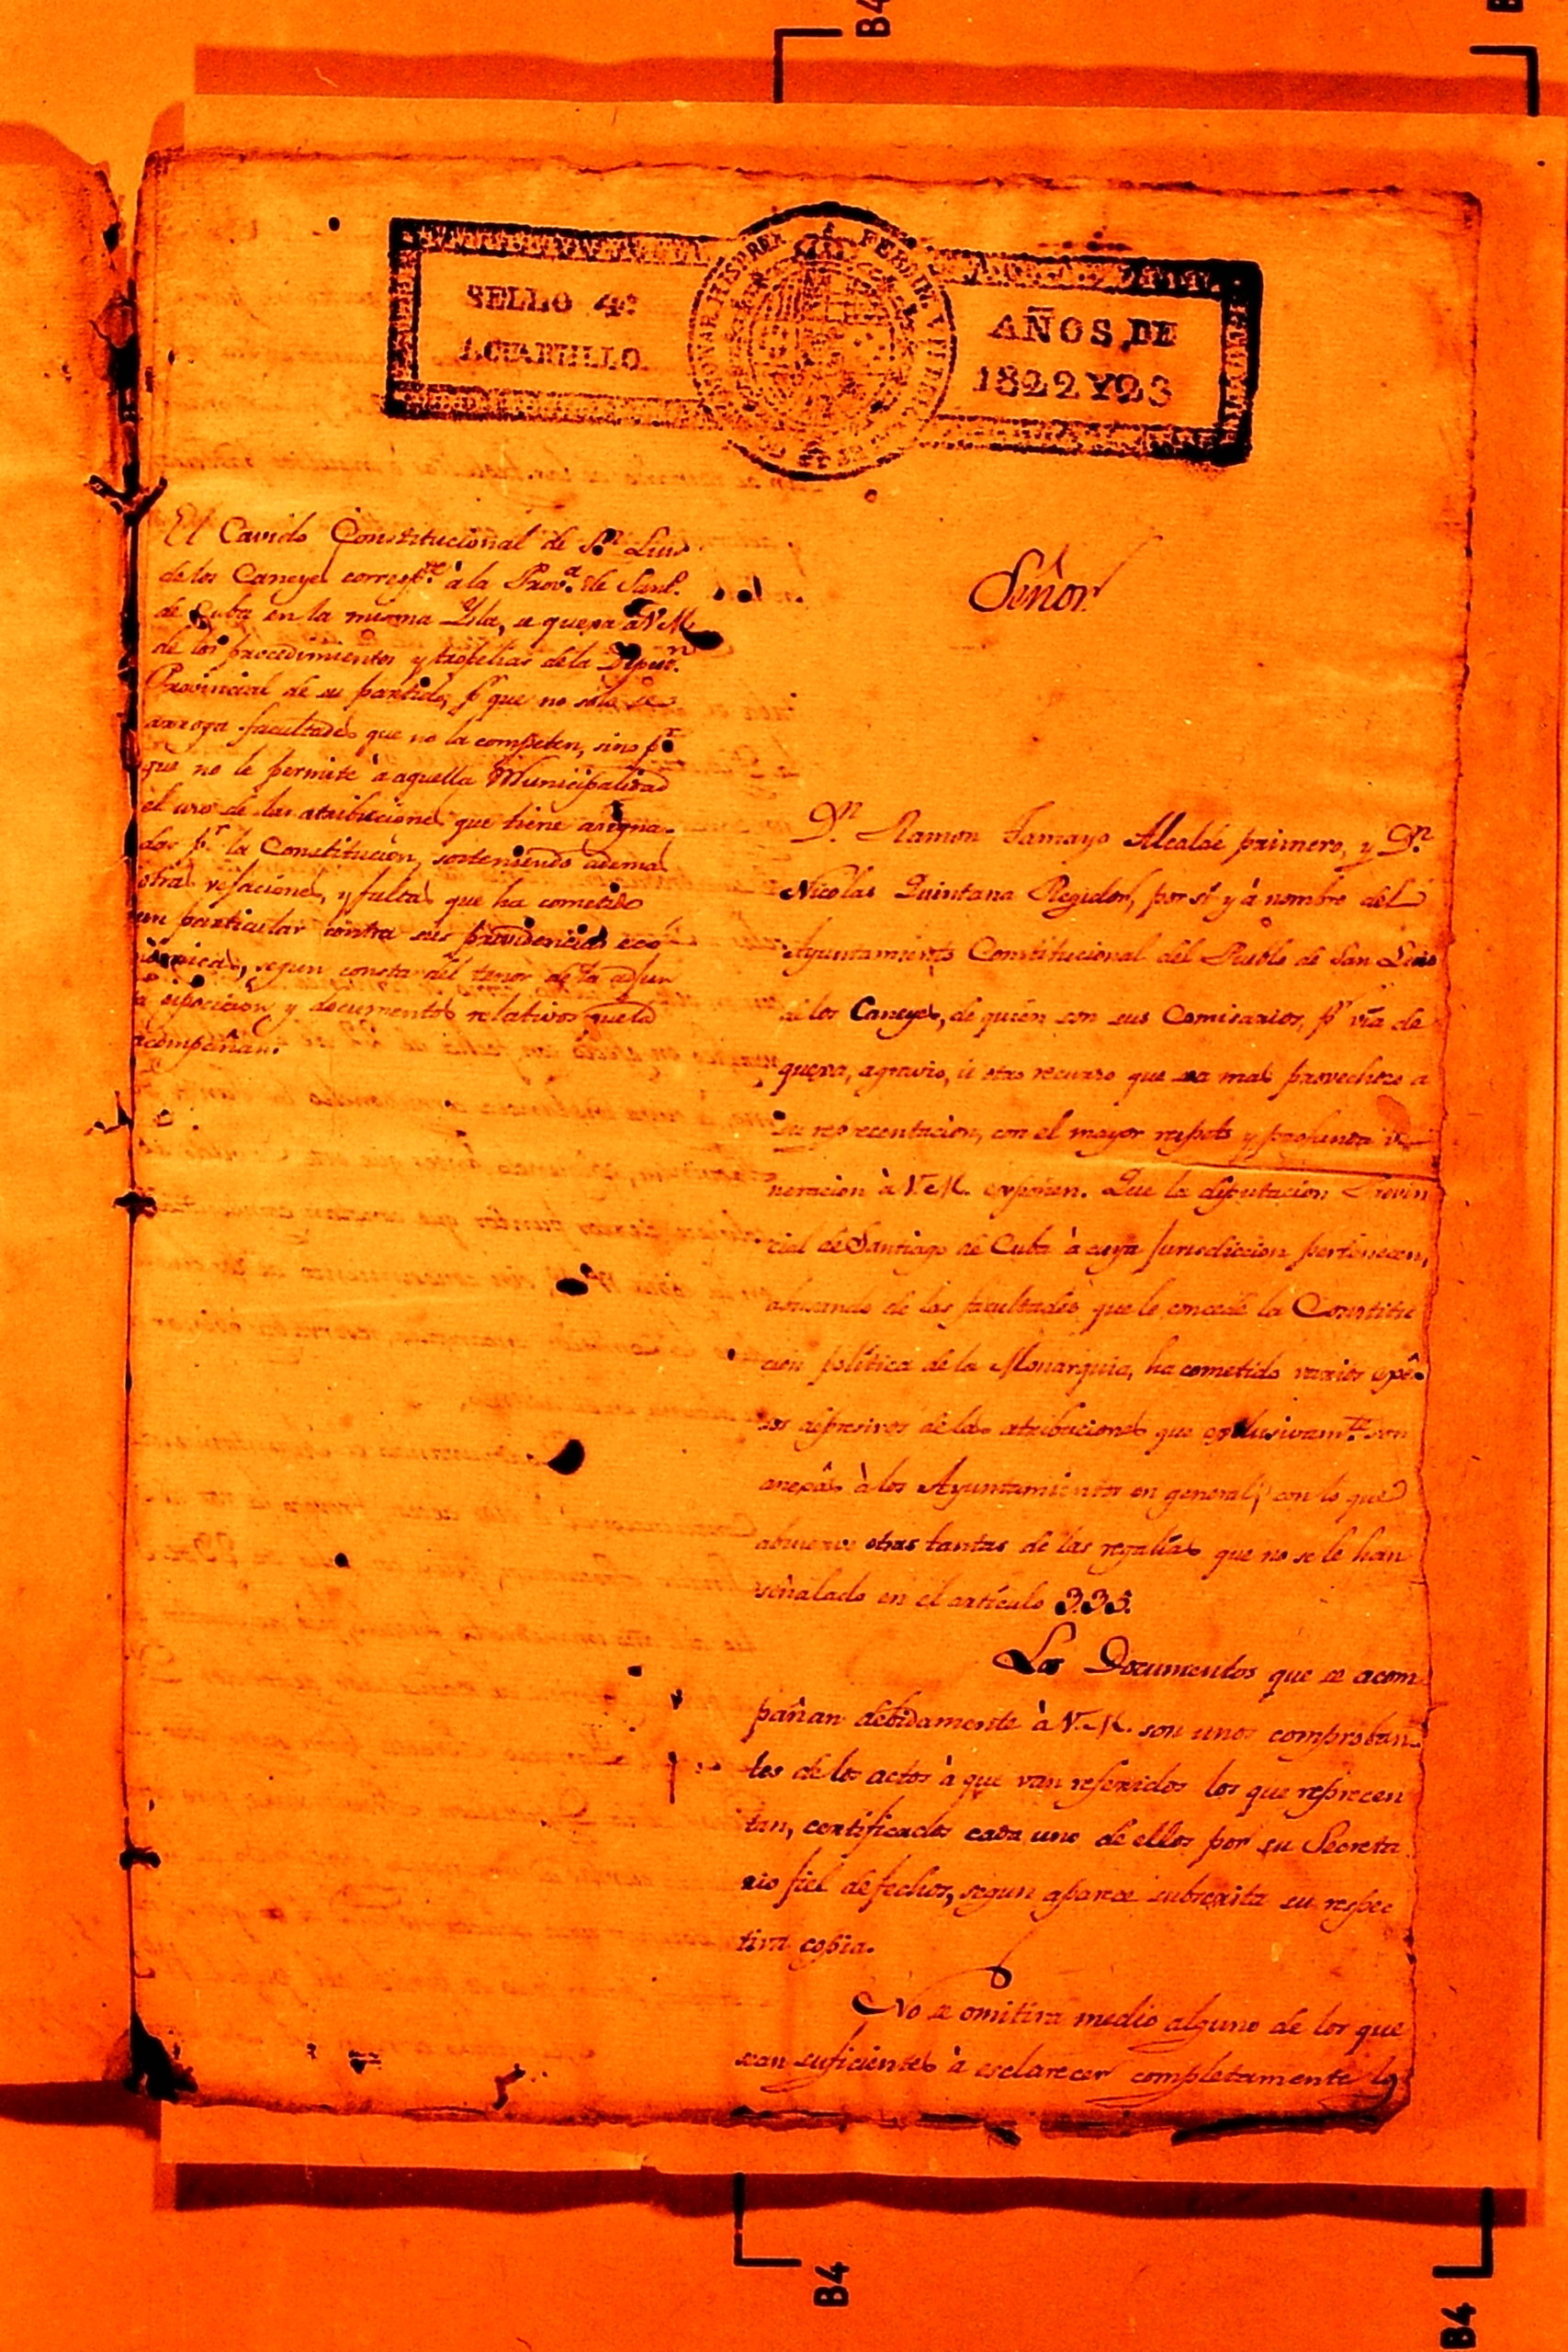 B4
SELLO 4º
1. CUARTILLO.
AÑOS, DE
1822 Y 23
El Cavildo Constitucional de Sn. Luis
de los Caneyes corresp.te à la Prov.a de Sant.
de Cuba en la misma Ysla, se quexa à V. M.
de los procedimientos y tropelias de la Diput.n
Provincial de su partido, pr que no solo se
arroga facultades que no la competen, sino pr
que no le permite à aquella Municipalidad
el uso de las atribuciones que tiene asigna-
das pr la Constitucion, sosteniendo ademas
otras vejaciones, y faltas que ha cometido
un particular contra sus providencias eco-
nómicas, segun consta del tenor de la adjun
ta exposicion y documentos relativos que la
acompañan.
Señor
Dn. Ramon Tamayo Alcalde primero, y Dn.
Nicolas Quintana Regidor, por sí y à nombre del
Ayuntamiento Constitucional del Pueblo de San Luis
de los Caneyes, de quien son sus Comisarios, pr vía de
quexa, agravio, ú otro recurso que sea mas provechoso a
su reprecentacion, con el mayor respeto y profunda ve
neracion à V. M. exponen. Que la diputacion Provin
cial de Santiago de Cuba à cuya jurisdiccion pertenecen,
abusando de las facultades que le concede la Constitu
cion política de la Monarquia, ha cometido varios expé-
sos depresivos de las atribuciones que exclusivam.te son
anexâs à los Ayuntamientos en general, con lo que
absuerve otras tantas de las regalías que no se le han
señalado en el artículo 335.
Los Documentos que se acom
pañan debidamente à V. M. son unos comproban-
tes de los actos à que van referidos los que reprecen
tan, certificados cada uno de ellos por su Secreta
rio fiel de fechos, segun aparece subscrita su respec
tiva copia.
No se omitira medio alguno de los que
sean suficientes à esclarecer completamente los
B4
B4